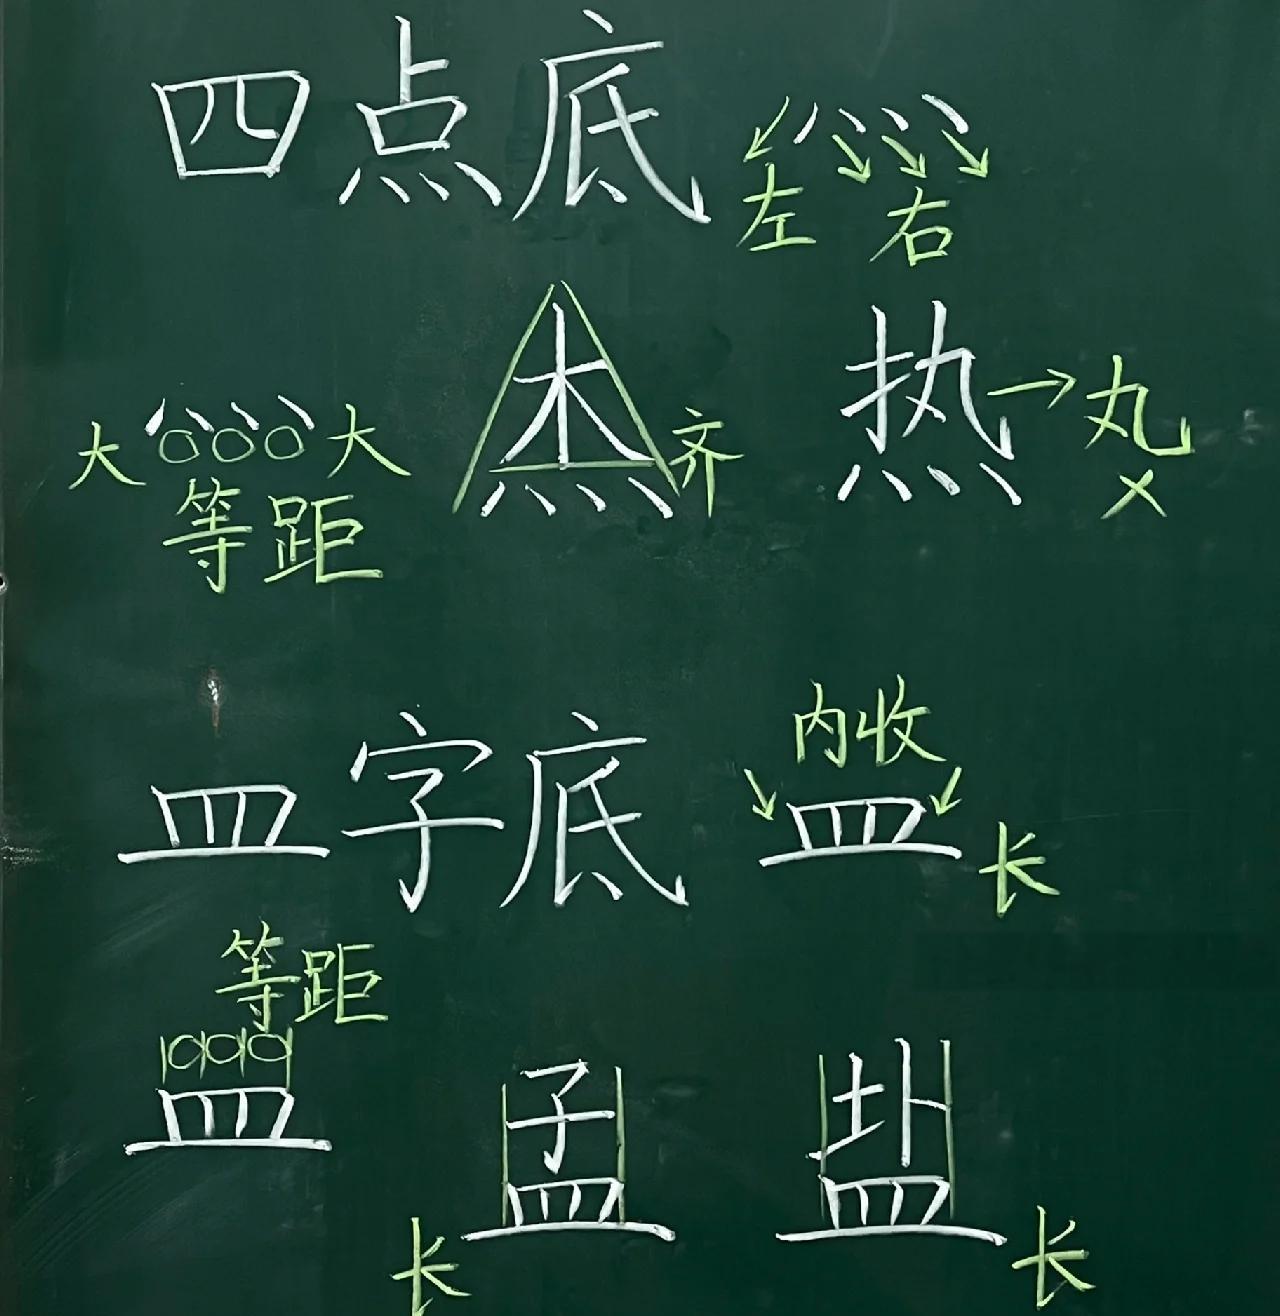 四点底
左 右
大 大 杰 齐 热 → 丸
等距 ×
皿字底 内收
皿 长
等距
皿 孟 盐
长 长